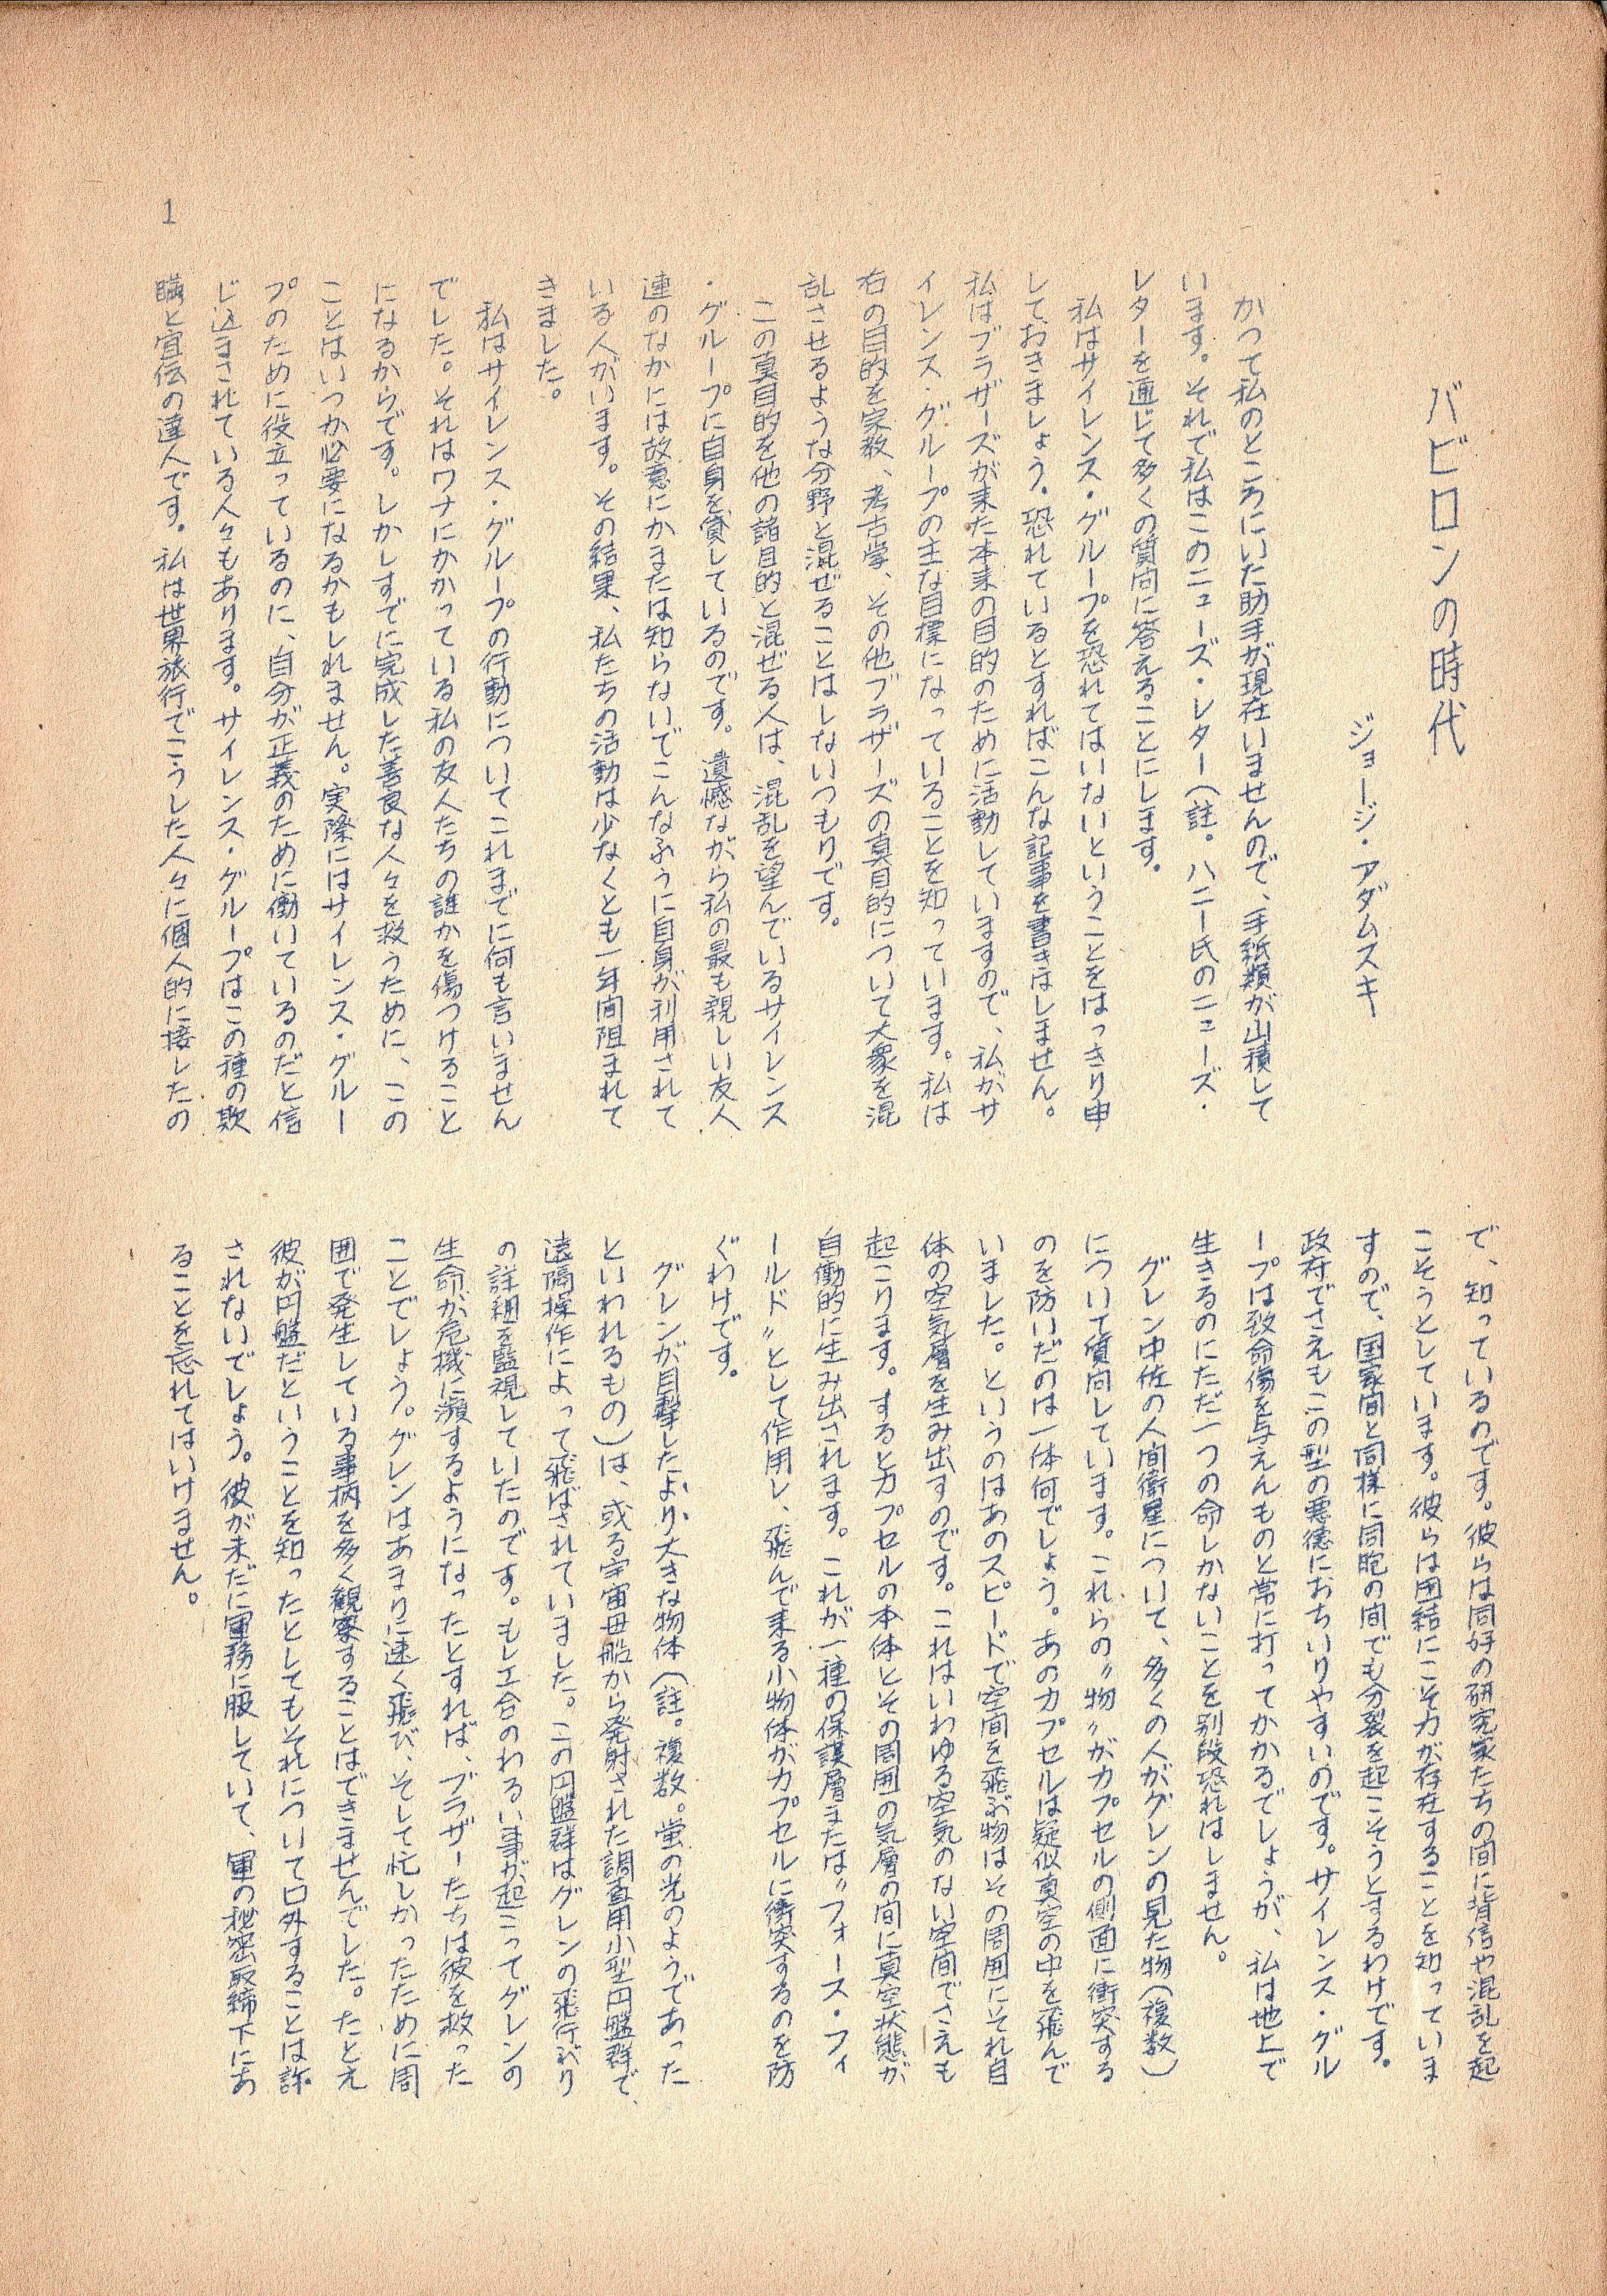 バビロンの時代
ジョージ・アダムスキ
かつて私のところにいた助手が現在いませんので、手紙類が山積して
います。それで私はこのニューズ・レター(註。ハニー氏のニューズ・
レターを通じて多くの質問に答えることにします。
私はサイレンス・グループを恐れてはいないということをはっきり申
しておきましょう。恐れているとすればこんな記事を書きはしません。
私はブラザーズが来た本来の目的のために活動していますので、私がサ
イレンス・グループの主な目標になっていることを知っています。私は
右の目的を宗教、考古学、その他ブラザーズの真目的について大衆を混
乱させるような分野と混ぜることはしないつもりです。
この真目的を他の諸目的と混ぜる人は、混乱を望んでいるサイレンス
・グループに自身を貸しているのです。遺憾ながら私の最も親しい友人
連のなかには故意にかまたは知らないでこんなふうに自身が利用されて
いる人がいます。その結果、私たちの活動は少なくとも一年間阻まれて
きました。
私はサイレンス・グループの行動についてこれまでに何も言いません
でした。それはワナにかかっている私の友人たちの誰かを傷つけること
になるからです。しかしすでに完成した善良な人々を救うために、この
ことはいつか必要になるかもしれません。実際にはサイレンス・グルー
プのために役立っているのに、自分が正義のために働いているのだと信
じ込まされている人々もあります。サイレンス・グループはこの種の欺
瞞と宣伝の達人です。私は世界旅行でこうした人々に個人的に接したの
で、知っているのです。彼らは同好の研究家たちの間に背信や混乱を起
こそうとしています。彼らは団結にこそ力が存在することを知っていま
すので、国家間と同様に同胞の間でも分裂を起こそうとするわけです。
政府でさえもこの型の悪徳におちいりやすいのです。サイレンス・グル
ープは致命傷を与えんものと常に打ってかかるでしょうが、私は地上で
生きるのにただ一つの命しかないことを別段恐れはしません。
グレン中佐の人間衛星について、多くの人がグレンの見た物(複数)
について質問しています。これらの〃物〃がカプセルの側面に衝突する
のを防いだのは一体何でしょう。あのカプセルは疑似真空の中を飛んで
いました。というのはあのスピードで空間を飛ぶ物はその周囲にそれ自
体の空気層を生み出すのです。これはいわゆる空気のない空間でさえも
起こります。するとカプセルの本体とその周囲の気層の間に真空状態が
自働的に生み出されます。これが一種の保護層または〃フォース・フィ
ールド〃として作用し、飛んで来る小物体がカプセルに衝突するのを防
ぐわけです。
グレンが目撃したより大きな物体(註。複数。蛍の光のようであった
といわれるもの)は、或る宇宙母船から発射された調査用小型円盤群で、
遠隔操作によって飛ばされていました。この円盤群はグレンの飛行ぶり
の詳細を監視していたのです。もし工合のわるい事が起こってグレンの
生命が危機に瀕するようになったとすれば、ブラザーたちは彼を救った
ことでしょう。グレンはあまりに速く飛び、そして忙しかったために周
囲で発生している事柄を多く観察することはできませんでした。たとえ
彼が円盤だということを知ったとしてもそれについて口外することは許
されないでしょう。彼が未だに軍務に服していて、軍の秘密取締下にあ
ることを忘れてはいけません。
1